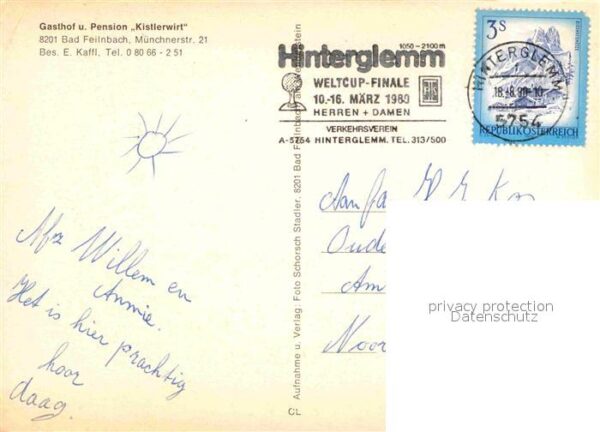 Gasthof u. Pension „Kistlerwirt"
8201 Bad Feilnbach, Münchnerstr. 21
Bes. E. Kaffl, Tel. 0 80 66 - 2 51
1050 - 2100 m
Hinterglemm
WELTCUP-FINALE
10.-16. MÄRZ 1980
HERREN + DAMEN
VERKEHRSVEREIN
A-5754 HINTERGLEMM. TEL. 313/500
3S
HINTERGLEMM
5754
REPUBLIK ÖSTERREICH
Afz Willem en
Annie.
Het is hier prachtig
hoor
daag.
Aufnahme u. Verlag: Foto Schorsch Stadler, 8201 Bad Feilnbach
CL
Aan fa
Oude
Am
Noor
privacy protection
Datenschutz